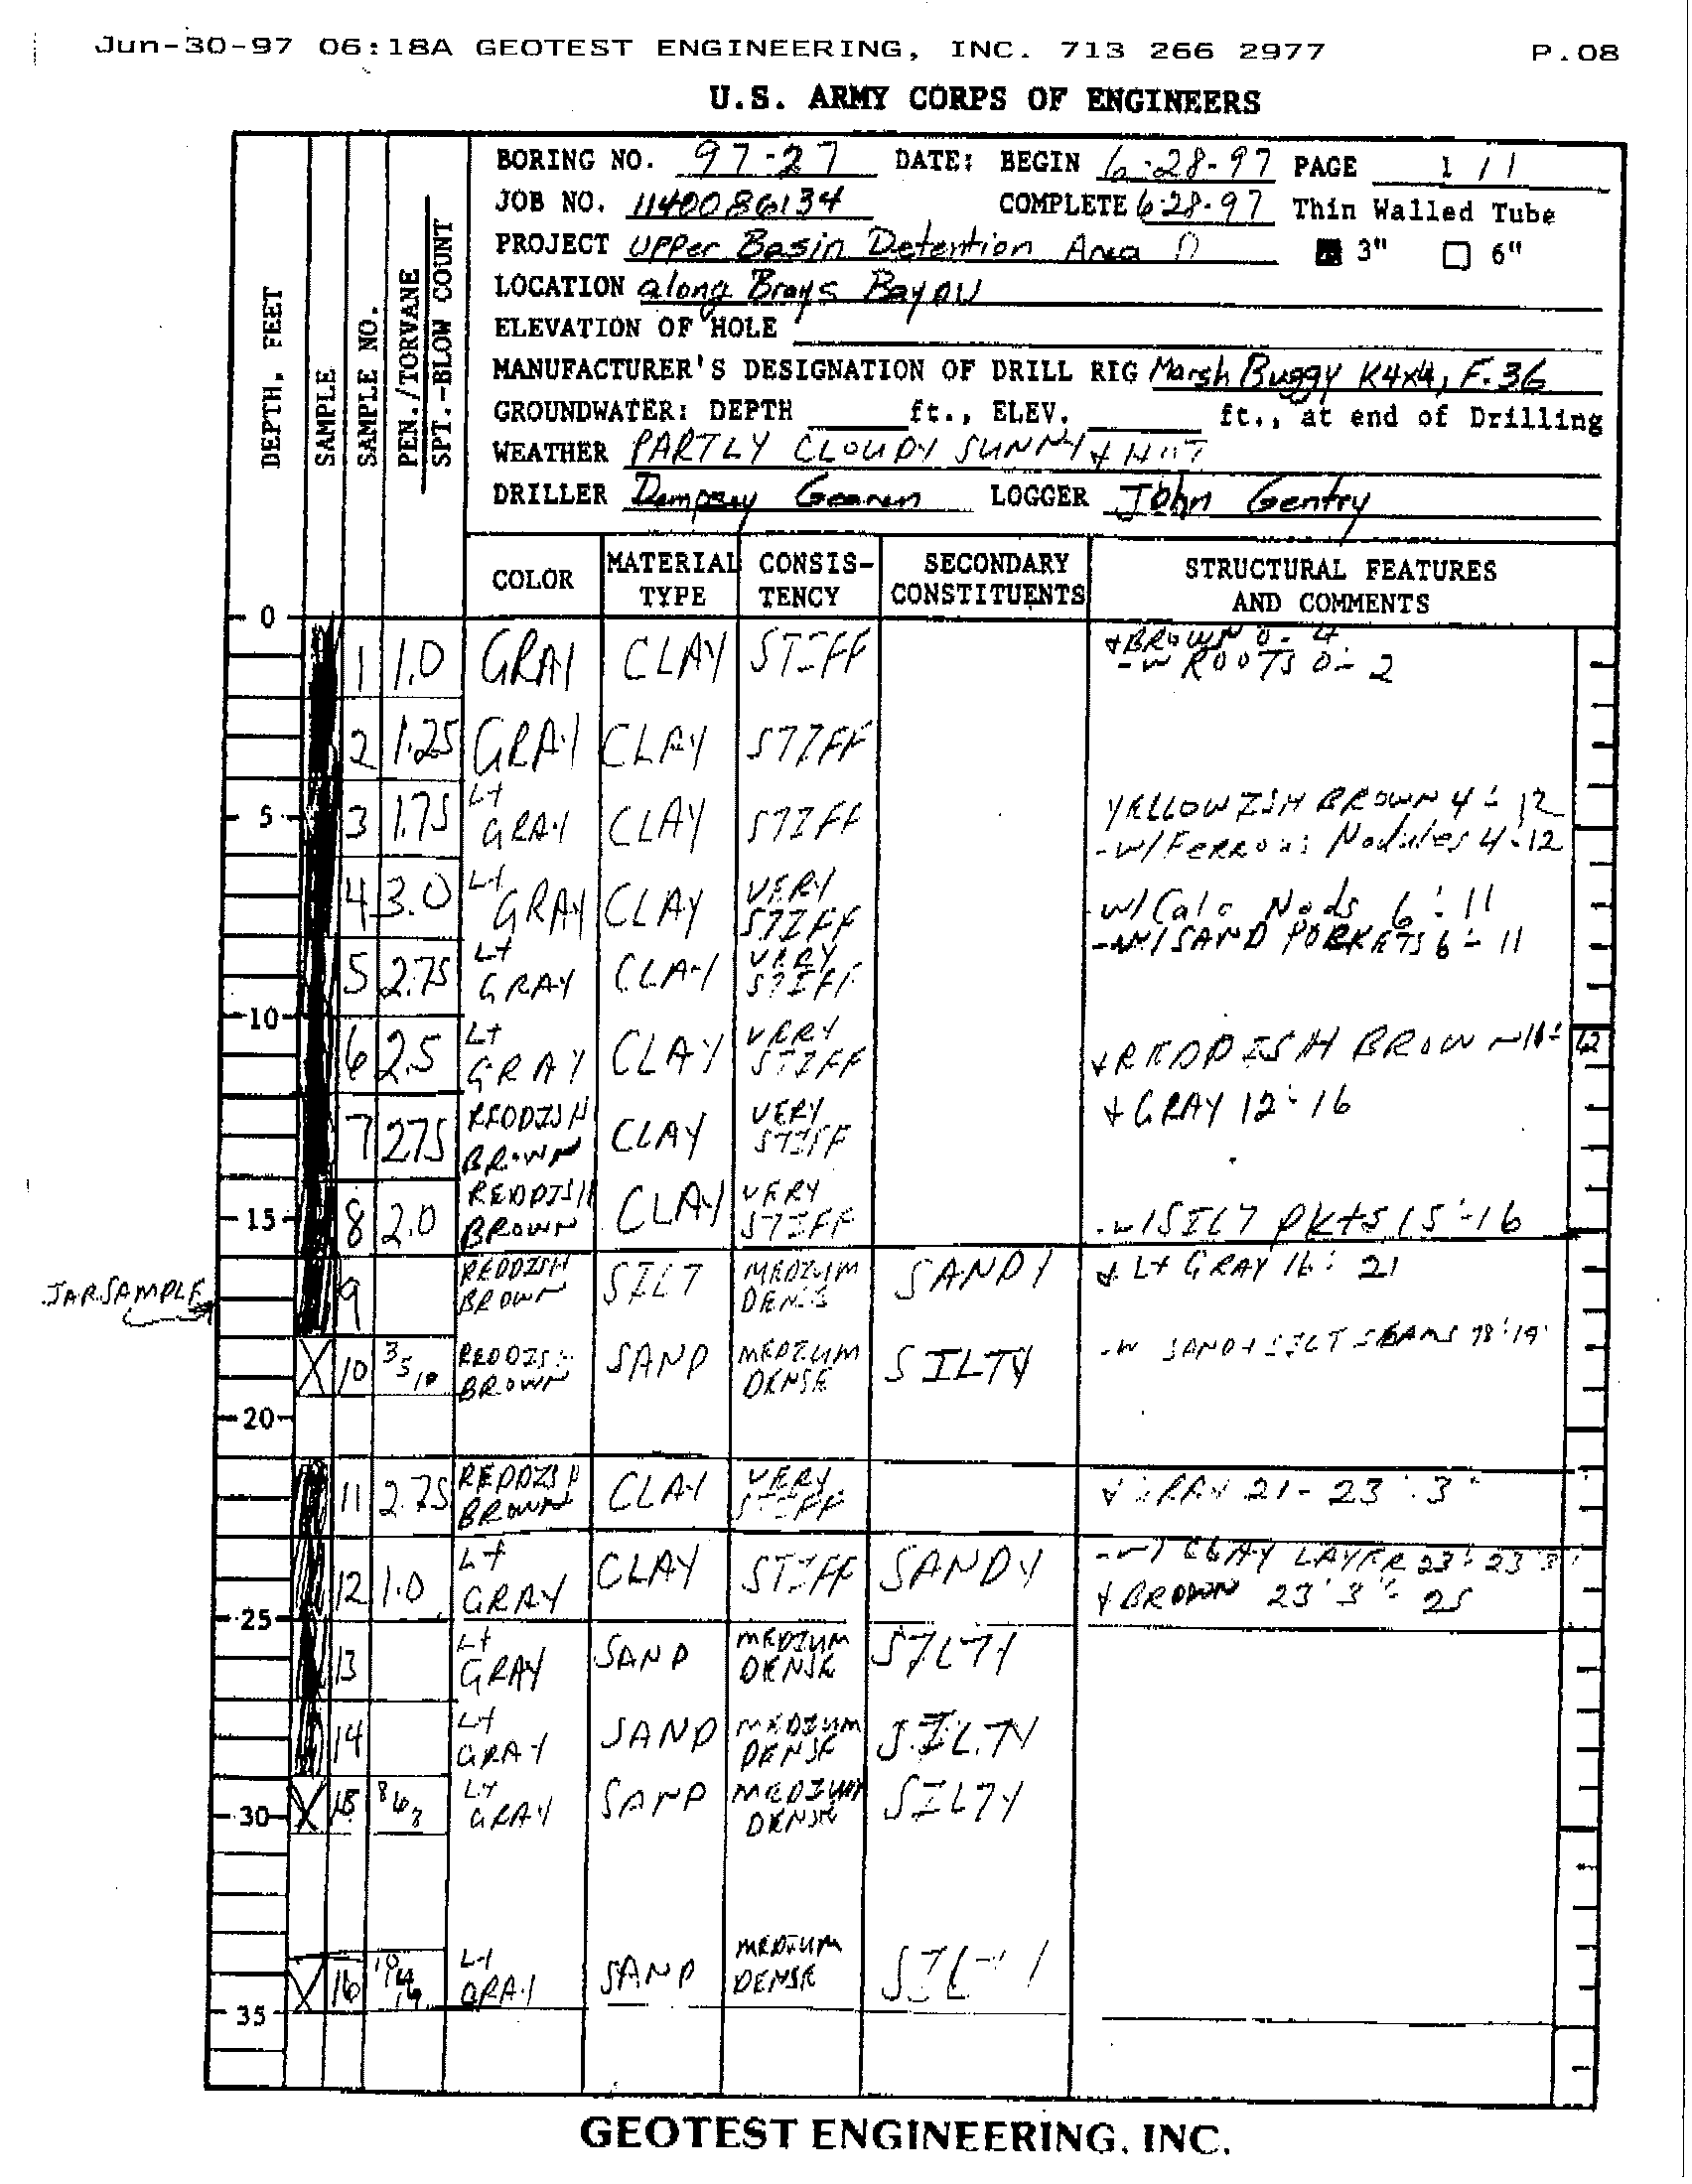 Jun-30-97 06:18A GEOTEST ENGINEERING, INC. 713 266 2977 P.08
U.S. ARMY CORPS OF ENGINEERS
BORING NO. 97-27 DATE: BEGIN 6-28-97 PAGE 1 / 1
JOB NO. 1140086134 COMPLETE 6-28-97 Thin Walled Tube
PROJECT Upper Basin Detention Area D 3" 6"
LOCATION along Brays Bayou
ELEVATION OF HOLE
MANUFACTURER'S DESIGNATION OF DRILL RIG Marsh Buggy K4x4, F-36
GROUNDWATER: DEPTH ft., ELEV. ft., at end of Drilling
WEATHER PARTLY CLOUDY SUNNY + HOT
DRILLER Dempsey LOGGER John Gentry
DEPTH, FEET
SAMPLE
SAMPLE NO.
PEN./TORVANE
SPT.-BLOW COUNT
COLOR MATERIAL TYPE CONSIS-TENCY SECONDARY CONSTITUENTS STRUCTURAL FEATURES AND COMMENTS
0
+ BROWN 0-4
1 1.0 GRAY CLAY STIFF -W ROOTS 0-2
2 1.25 GRAY CLAY STIFF
5 3 1.75 LT GRAY CLAY STIFF YELLOWISH BROWN 4'-12
-W/FERROUS Nodules 4-12
4 3.0 LT GRAY CLAY VERY STIFF -W/Calc Nods 6'-11
-W/SAND POCKETS 6'-11
5 2.75 LT GRAY CLAY VERY STIFF
10
6 2.5 LT GRAY CLAY VERY STIFF + REDDISH BROWN 11'-12
7 2.75 REDDISH BROWN CLAY VERY STIFF + GRAY 12'-16
15 8 2.0 REDDISH BROWN CLAY VERY STIFF -W/SILT pkts 15'-16
JAR SAMPLE 9 REDDISH BROWN SILT MEDIUM DENSE SANDY + Lt GRAY 16'-21
10 3 5 10 REDDISH BROWN SAND MEDIUM DENSE SILTY -W SAND + SILT SEAMS 18'-19'
20
11 2.75 REDDISH BROWN CLAY VERY STIFF + GRAY 21-23'-3"
12 1.0 LT GRAY CLAY STIFF SANDY -W/ CLAY LAYER 23'-23'3"
+ BROWN 23'3"-25
25
13 LT GRAY SAND MEDIUM DENSE SILTY
14 LT GRAY SAND MEDIUM DENSE SILTY
30 15 8 6 LT GRAY SAND MEDIUM DENSE SILTY
16 10 14 19 LT GRAY SAND MEDIUM DENSE SILTY
35
GEOTEST ENGINEERING, INC.